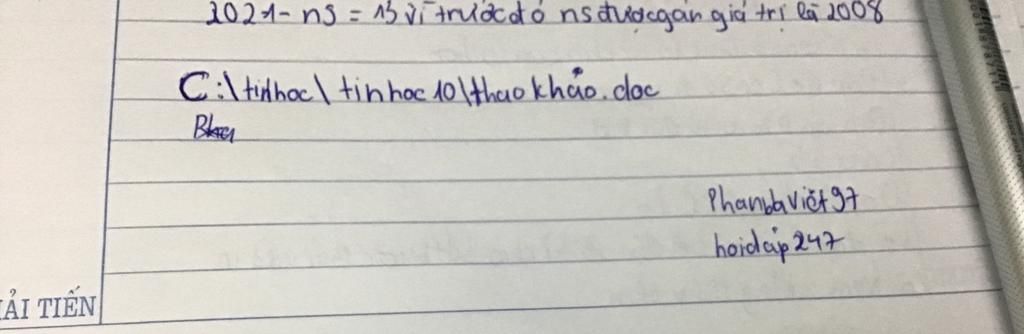 2021 - ns = 13 vì trước đó ns được gán giá trị là 2008
C:\tinhoc\ tinhoc 10\thao khảo.doc
Phanbaviết97
hoidáp 247
ẢI TIẾN